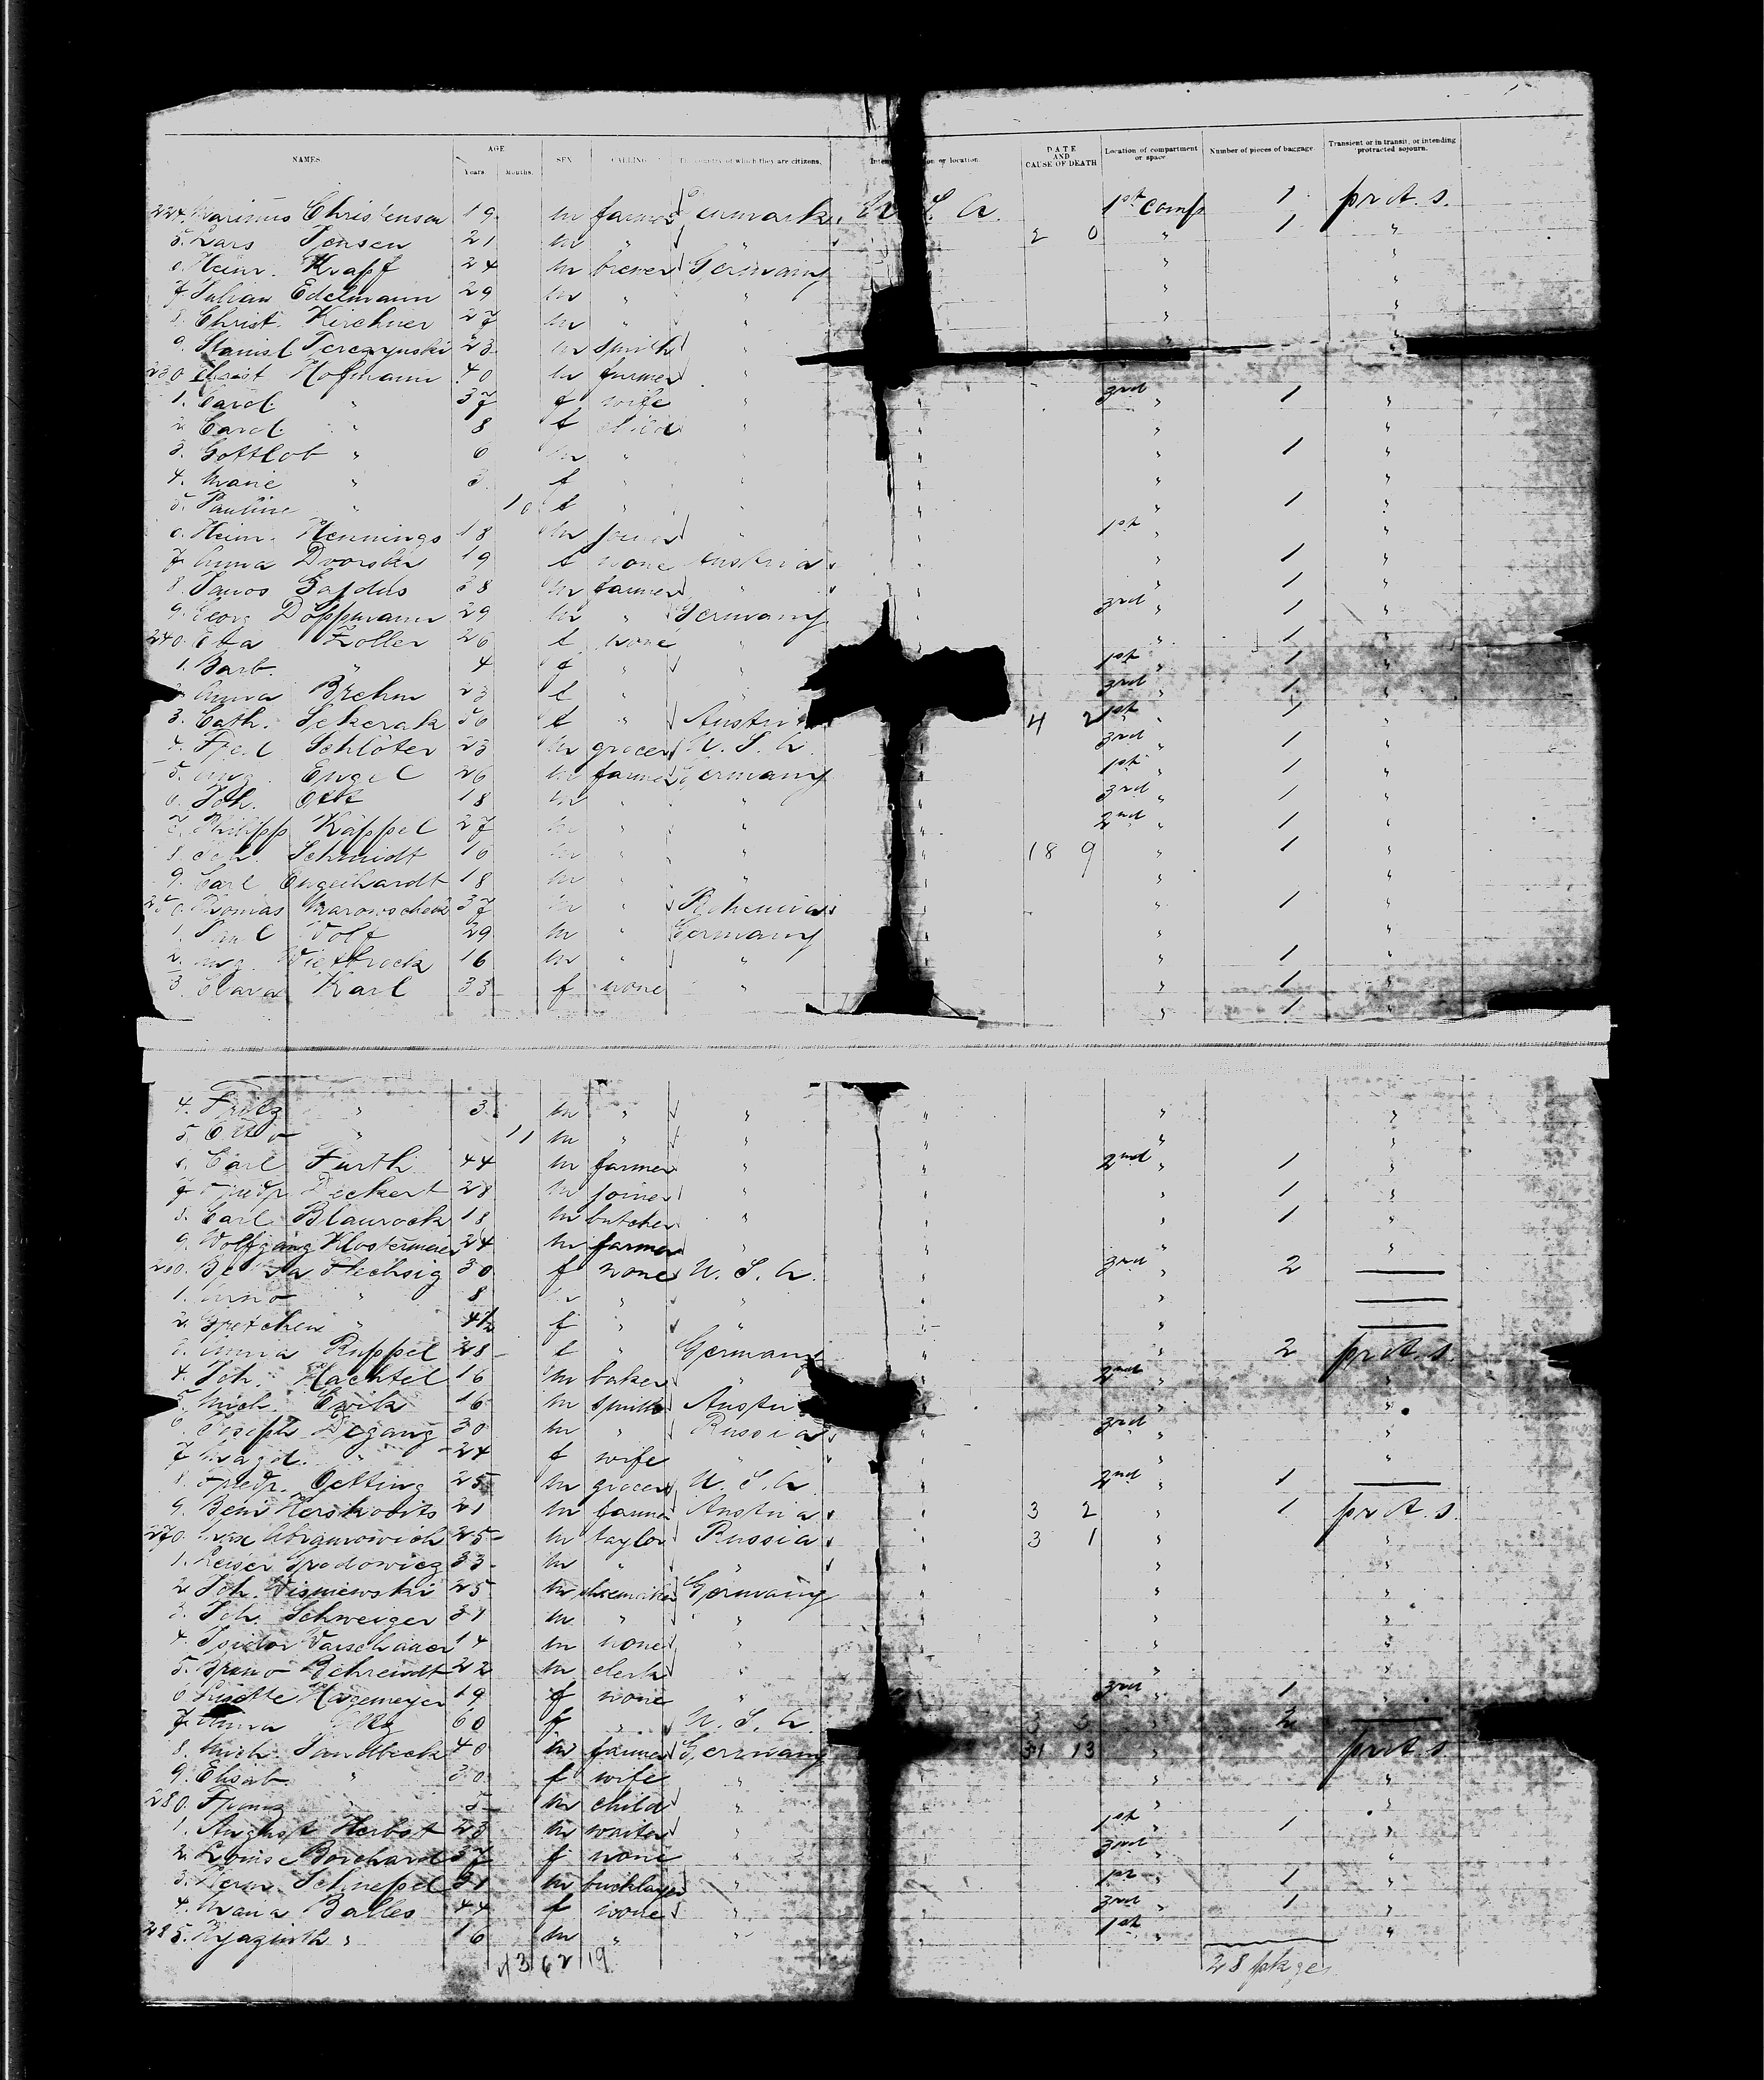 NAMES. AGE Years. Months. SEX CALLING. The country of which they are citizens. DATE AND CAUSE OF DEATH Location of compartment or space Number of pieces of baggage. Transient or in transit, or intending protracted sojourn.
224. Marinus Christensen 19 m farmer Denmark U. S. A. 1st Comp 1 prot. s.
5. Lars Jensen 21 m " " 2 0 " 1 "
6. Heinr. Krapf 24 m brewer Germany " "
7. Julian Edelmann 29 m " " " "
8. Christ. Kirchner 27 m " " " "
9. Stanisl 23 m smith " "
230. Christ Hofmann 40 m farmer "
1. Carol. " 37 f wife " 3rd " 1 "
2. Carol. " 8 f child " " "
3. Gottlob " 6 m " " " 1 "
4. Marie " 3 f " " " "
5. Pauline " 10 f " " " 1 "
6. Heinr. Hennings 18 m joiner " 1st " "
7. Anna Dvorsky 19 f none Austria " 1 "
8. Janos 38 m farmer " " 1 "
9. Georg Döppmann 29 m " Germany 3rd " 1 "
240. Eva Zoller 26 f none " " 1 "
1. Barb. " 4 f " " 1st " 1 "
Anna Brehm 23 f " " 3rd " 1 "
3. Cath. Sekerak 56 f " Austri 4 2 1st " 1 "
4. Fred Schlöter 23 m grocer U. S. A. 3rd " 1 "
5. Aug. Engel 26 m farmer Germany 1st " 1 "
6. Joh. 18 m " " 3rd " 1 "
7. Philipp Käppel 27 m " " 2nd " 1 "
8. Joh. Schmidt 16 m " " 18 9 " 1 "
9. Carl Engelhardt 18 m " " " "
250. Thomas 37 m " Bohemia " 1 "
1. Paul Wolf 29 m " Germany " "
2. Aug. Wietbrock 16 m " " " 1 "
3. Clara Karl 33 f none " " 1 "
" 1 "
4. Fritz " 3 m " " " " "
5. Otto " 11 m " " " "
6. Carl Furth 44 m farmer " " 2nd " 1 "
7. Friedr. Deckert 28 m joiner " " " 1 "
8. Carl Blaurock 18 m butcher " " " 1 "
9. Wolfgang Klostermeier 24 m farmer " " " "
260. Flechsig 30 f none U. S. A. " 3rd " 2 —
1. Arno " 8 m " " " " —
2. Gretchen " 4½ f " " " " —
3. Anna Ruppel 28 f " Germany " " 2 prot. s.
4. Joh. Hachtel 16 m baker " 2nd " "
5. Mich. 16 m smith Austri " "
6. Joseph Degang 30 m " Russia 3rd " "
7. Magd. " 24 f wife " " "
8. Friedr. Oetting 25 m grocer U. S. A. " 2nd " 1 —
9. Beni Herskovits 21 m farmer Austria " 3 2 " 1 prot. s.
270. 25 m taylor Russia " 3 1 " "
1. Leiser 33 m " " " " "
2. Joh. Wisniewski 25 m shoemaker Germany " " "
3. Joh. Schweiger 31 m " " " " "
4. Isidor Warschauer 14 m none " " " "
5. Bruno Behrendt 22 m clerk " " "
6. Lisette Hagemeyer 19 f none " 3rd " 1 "
7. Anna 60 f " U. S. A. " 2 —
8. Mich. Sandbeck 40 m farmer Germany 31 13 " prot. s.
9. Elisab. " 30 f wife " " " "
280. Franz " 5 m child " " " "
1. August Herbst 28 m waiter " " 1st " 1 "
2. Louise Borchard 37 f none " " 3rd " "
3. Herm. Schnepel 31 m bricklayer " " 1st " 1 "
4. Maria Balles 44 f none " " 3rd " 1 "
285. Hyazinth " 16 m " " " 1st " "
43 62 19 28 pakges